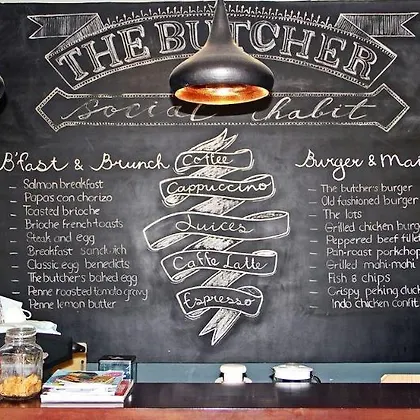 THE BUTCHER
Social habit
B'fast & Brunch
Salmon breakfast
Papas con chorizo
Toasted brioche
Brioche french toasts
Steak and egg
Breakfast sandwich
Classic egg benedicts
The butcher's baked egg
Penne roasted tomato gravy
Penne lemon butter
Coffee
Cappuccino
Juices
Caffe Latte
Espresso
Burger & Mai
The butcher's burger
Old fashioned burger
The lots
Grilled chicken burg
Peppered beef fille
Pan-roast porkchop
Grilled mahi-mahi
Fish & chips
Crispy peking duck
Indo chicken confit